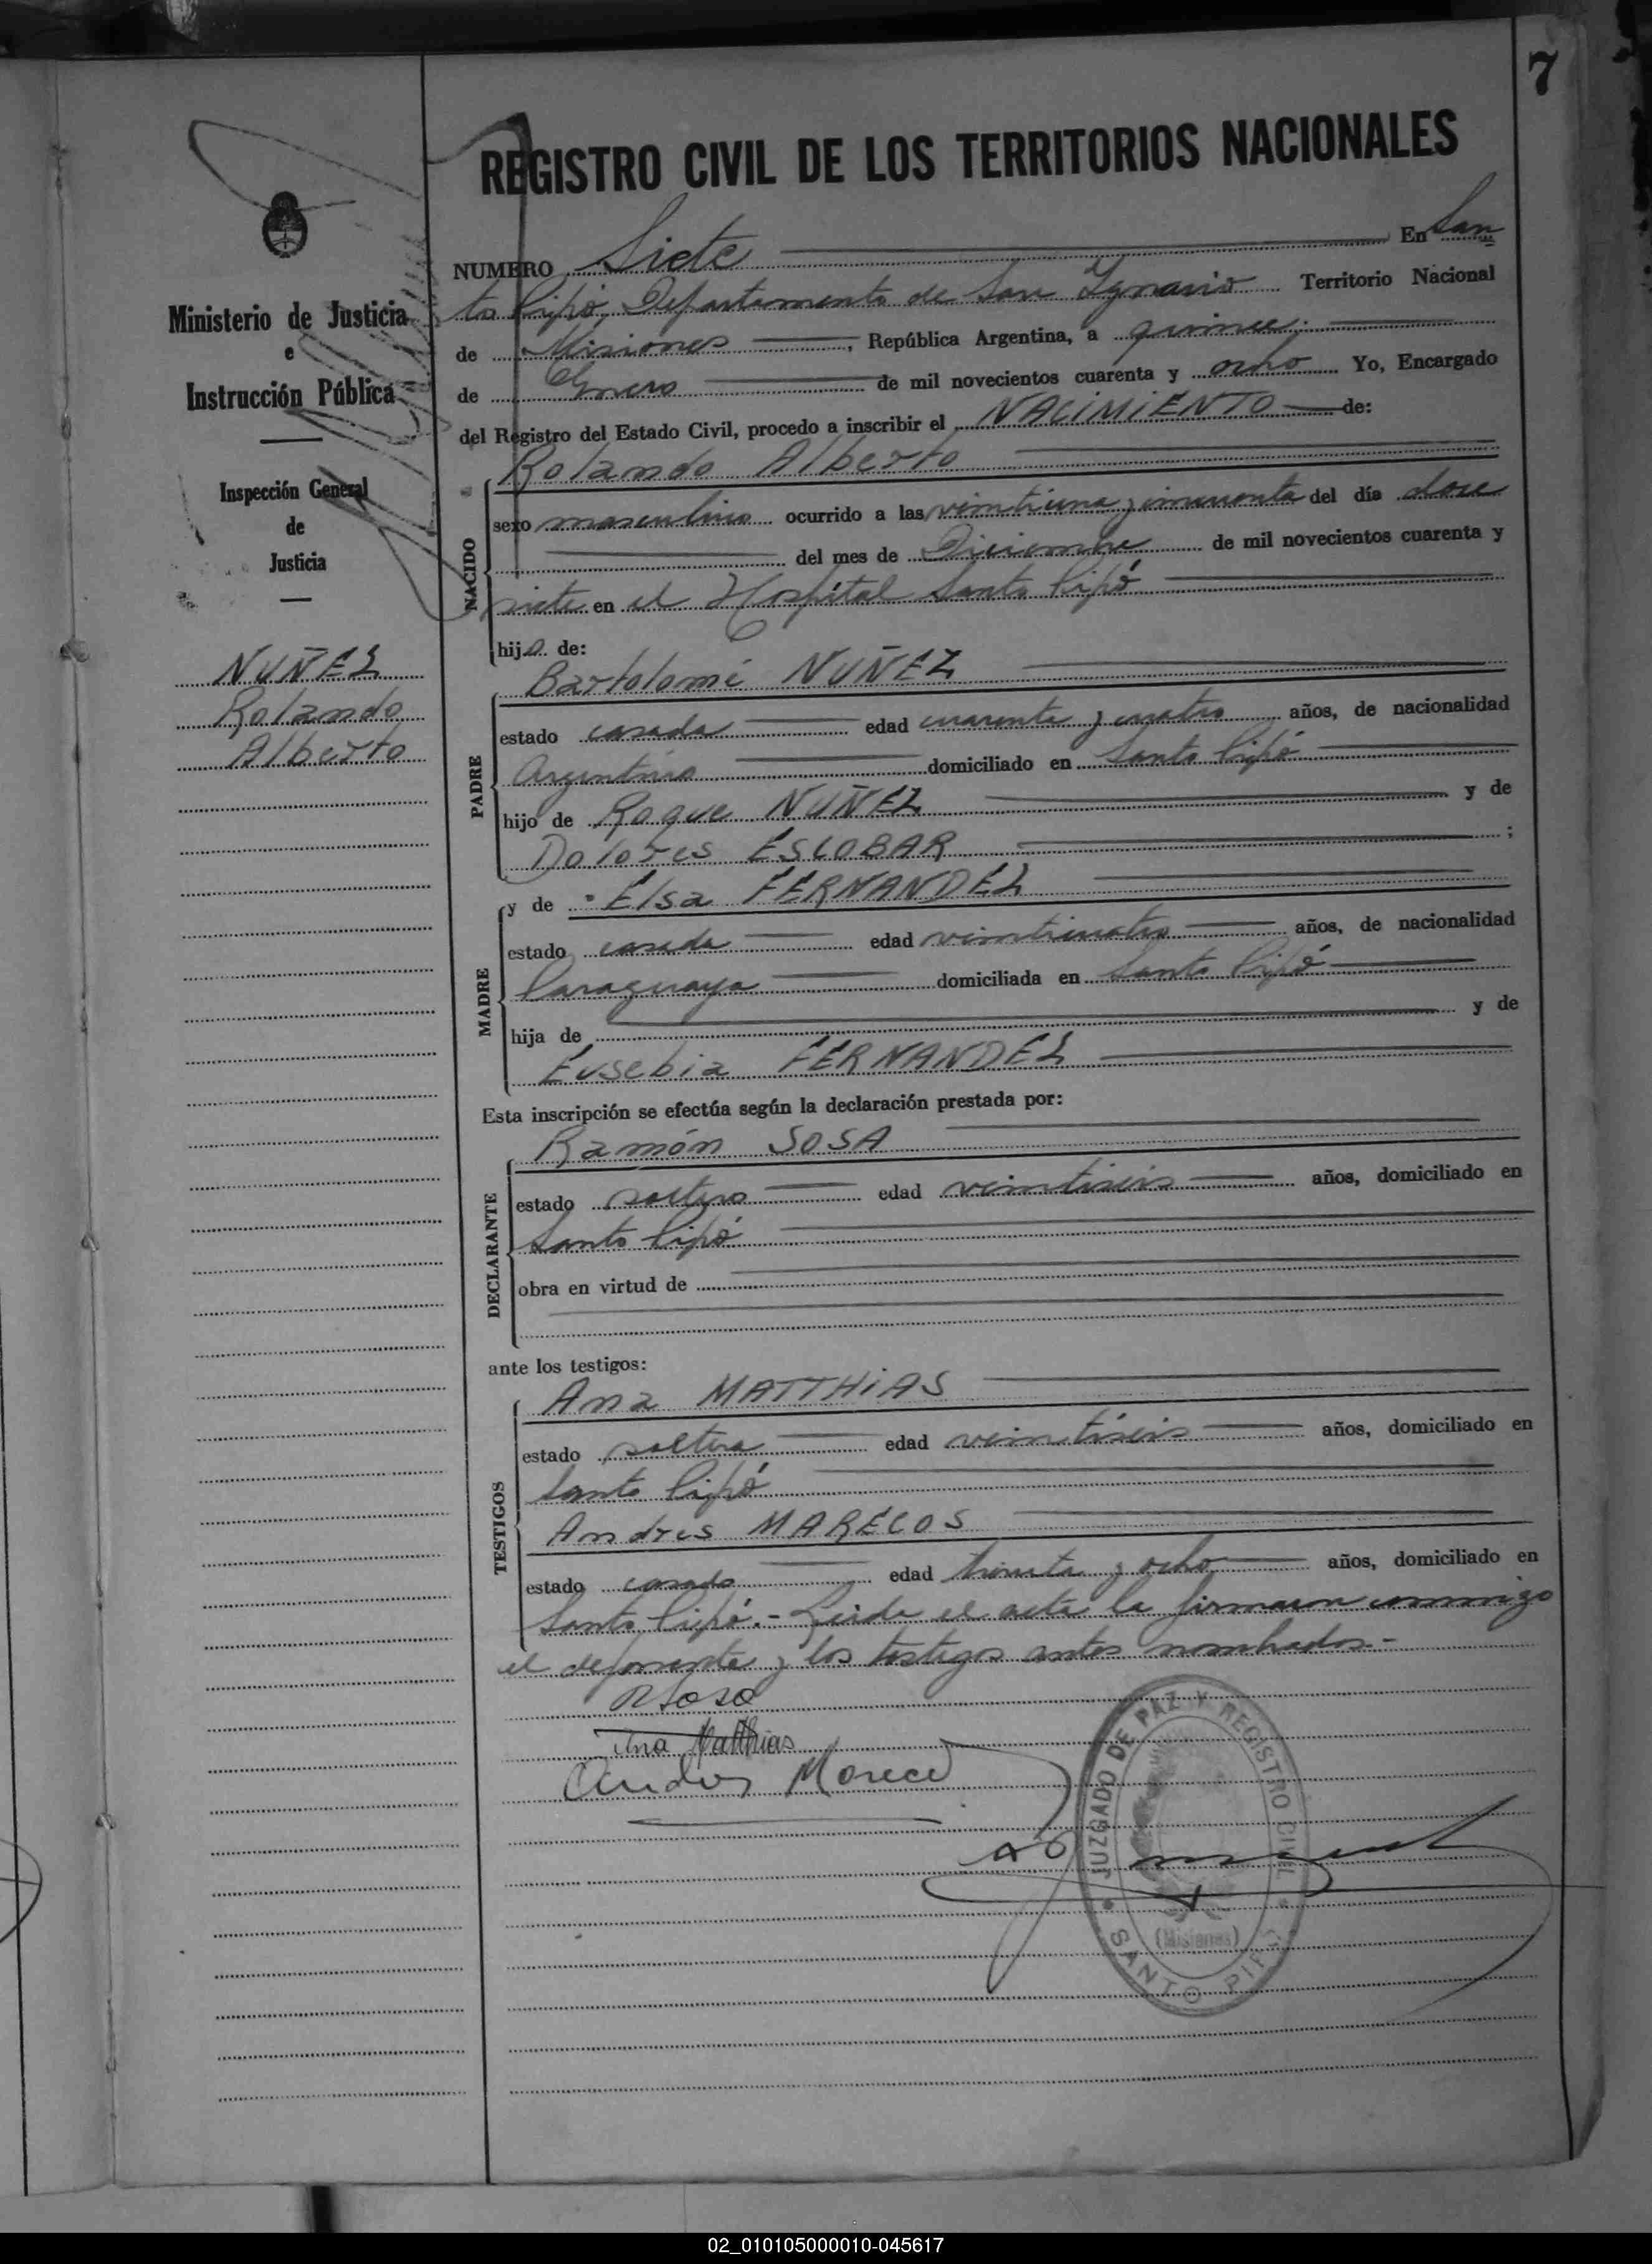 7
REGISTRO CIVIL DE LOS TERRITORIOS NACIONALES
Ministerio de Justicia
e
Instrucción Pública
Inspección General
de
Justicia
NUÑEZ
Rolando
Alberto
NUMERO Siete En San
to Pipó, Departamento de San Ygnacio Territorio Nacional
de Misiones, República Argentina, a quince
de Enero de mil novecientos cuarenta y ocho Yo, Encargado
del Registro del Estado Civil, procedo a inscribir el NACIMIENTO de:
NACIDO
Rolando Alberto
sexo masculino ocurrido a las veintiuna y cincuenta del día doce
del mes de Diciembre de mil novecientos cuarenta y
siete en el Hospital Santo Pipó
hijo de:
PADRE
Bartolomé NUÑEZ
estado casado edad cuarenta y cuatro años, de nacionalidad
Argentino domiciliado en Santo Pipó
hijo de Roque NUÑEZ y de
Dolores ESCOBAR ;
MADRE
y de Elsa FERNANDEZ
estado casada edad veinticuatro años, de nacionalidad
Paraguaya domiciliada en Santo Pipó
hija de y de
Eusebia FERNANDEZ
Esta inscripción se efectúa según la declaración prestada por:
DECLARANTE
Ramón SOSA
estado soltero edad veintiseis años, domiciliado en
Santo Pipó
obra en virtud de
ante los testigos:
TESTIGOS
Ana MATTHIAS
estado soltera edad veintiseis años, domiciliado en
Santo Pipó
Andres MARECOS
estado casado edad treinta y ocho años, domiciliado en
Santo Pipó.- Leida el acta la firmaron conmigo
el deponente y los testigos antes nombrados.-
R Sosa
Ana Matthias
Andres
JUZGADO DE PAZ Y REGISTRO CIVIL
(Misiones)
SANTO PIPÓ
02_010105000010-045617